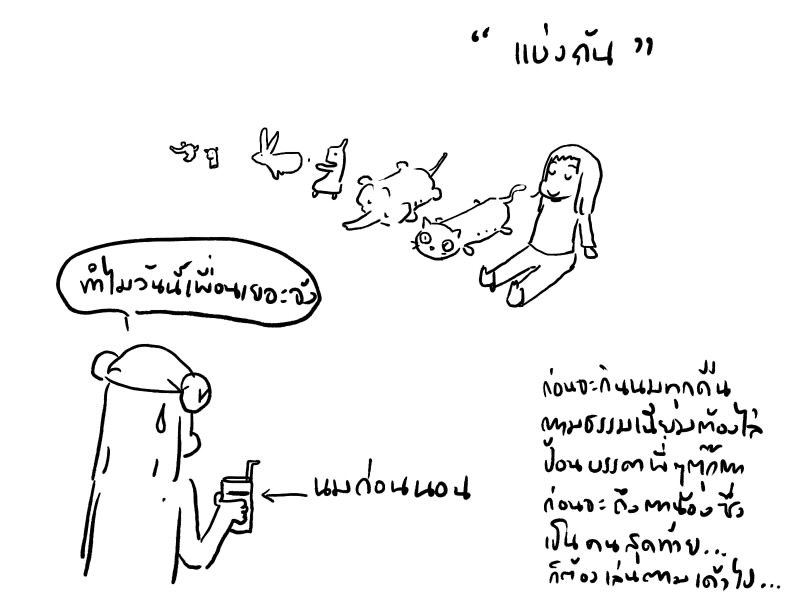 “ แบ่งกัน ”
ทำไมวันนี้เพื่อนเยอะจัง
นมก่อนนอน
ก่อนจะกินนมทุกคืน
ตามธรรมเนียมต้องไล่
ป้อนบรรดาพี่ๆตุ๊กตา
ก่อนจะถึงตาน้องซึ่ง
เป็นคนสุดท้าย...
ก็ต้องเล่นตามเค้าไป...